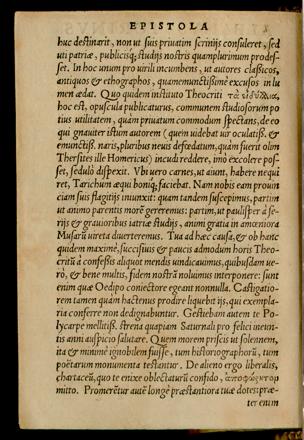 EPISTOLA
huc destinarit, non ut suis priuatim scrinijs consuleret, sed
uti patriæ, publicisq; studijs nostris quamplurimum prodes-
set. In hoc unum pro uirili incumbens, ut autores classicos,
antiquos & ethographos, quamemunctißimè excusos in lu
men ædat. Quo quidem instituto Theocriti τὰ εἰδύλλια,
hoc est, opuscula publicaturus, communem studiosorum po
tius utilitatem, quàm priuatum commodum spectans, de eo
qui gnauiter istum autorem (quem uidebat uir oculatiß. &
emunctiß. naris, pluribus neuis defœdatum, quàm fuerit olim
Thersites ille Homericus) incudi reddere, imò excolere pos-
set, sedulò dispexit. Vbi uero carnes, ut aiunt, habere nequi
ret, Tarichum æqui boniq; faciebat. Nam nobis eam prouin
ciam suis flagitijs iniunxit: quam tandem suscepimus, partim
ut animo parentis morē gereremus: partim, ut paulisper à se
rijs & grauioribus iatriæ studijs, animi gratia in amœniora
Musarū uireta diuerteremus. Tua ad hæc causa, & ob hanc
quidem maximè, succisiuis & paucis admodum horis Theo-
critū à confeßis aliquot mendis uindicauimus, quibusdam ue-
rò, & bene multis, fidem nostrā noluimus interponere: sunt
enim quæ Oedipo coniectore egeant nonnulla. Castigatio-
rem tamen quàm hactenus prodire liquebit ijs, qui exempla-
ria conferre non dedignabuntur. Gestiebam autem te Po-
lycarpe mellitiß. strena quapiam Saturnali pro felici ineun-
tis anni auspicio salutare. Quem morem priscis ut solennem,
ita & minimè ignobilem fuisse, tum historiographorū, tum
poëtarum monumenta testantur. De alieno ergo liberalis,
chartaceū, quo te enixe oblectaturū confido,
mitto. Promerētur autē longè præstantiora tuæ dotes: præ-
ter enim